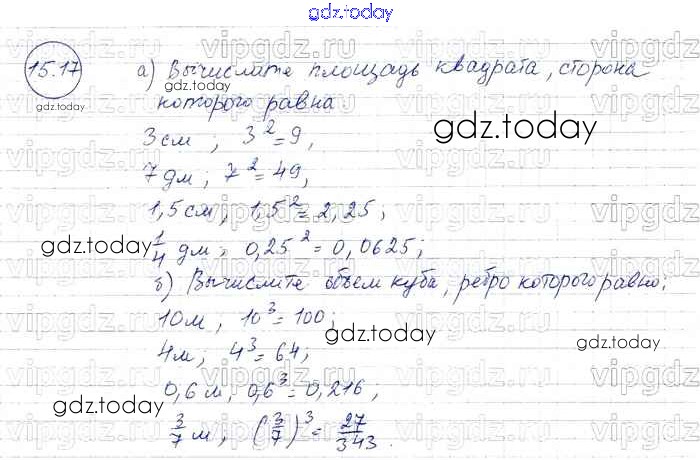 gdz.today
15.17
а) Вычислите площадь квадрата, сторона
которого равна
gdz.today
3 см ; 3² = 9,
gdz.today
7 дм ; 7² = 49,
1,5 см ; 1,5² = 2,25 ;
gdz.today
1/4 дм ; 0,25² = 0,0625 ;
б) Вычислите объем куба, ребро которого равно:
10 м , 10³ = 100 ;
gdz.today
4 м , 4³ = 64 ;
0,6 м , 0,6³ = 0,216 ;
gdz.today
3/7 м , (3/7)³ = 27/343 .